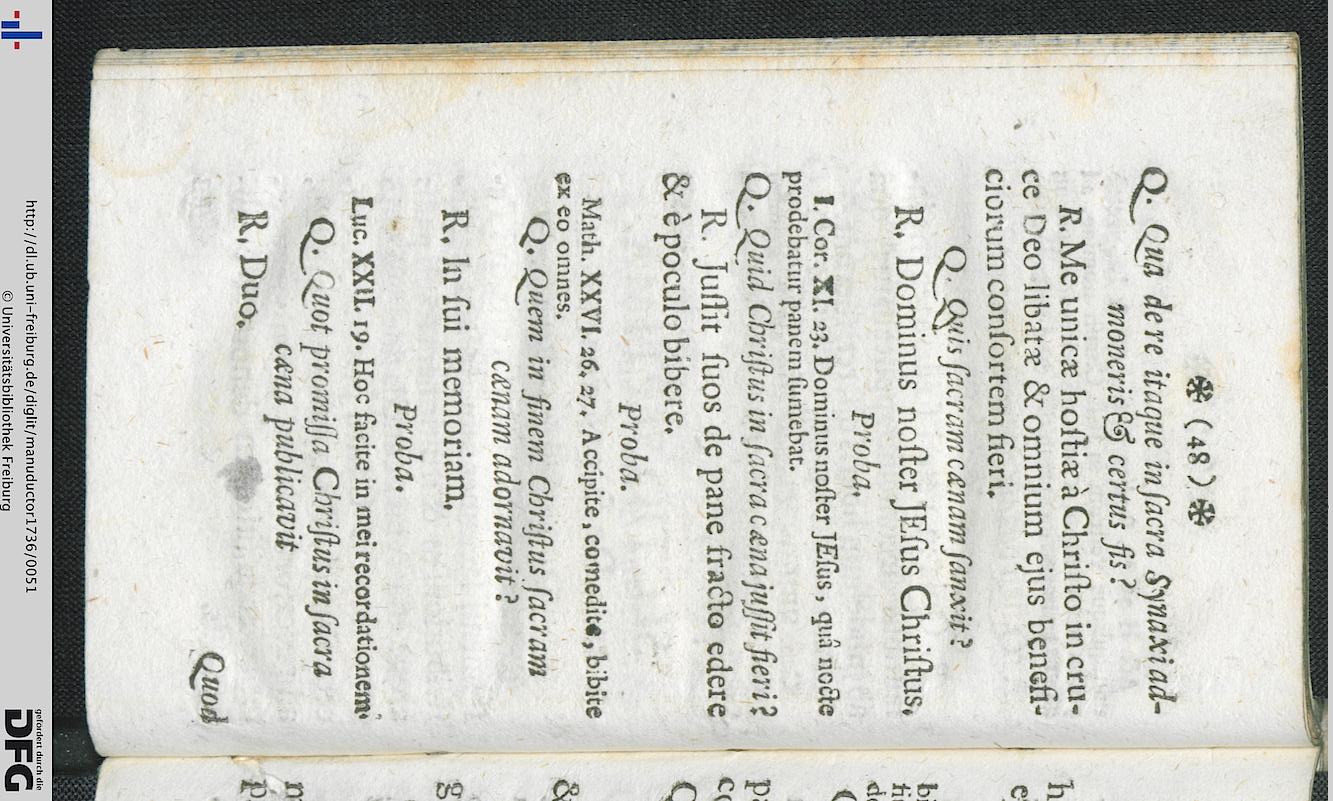 ❃ ( 48 ) ❃
Q. Qua de re itaque in ſacra Synaxi ad-
moneris & certus ſis?
R. Me unicæ hoſtiæ à Chriſto in cru-
ce Deo libatæ & omnium ejus benefi-
ciorum conſortem fieri.
Q. Quis ſacram cænam ſanxit?
R. Dominus noſter JEſus Chriſtus.
Proba.
I. Cor. XI. 23. Dominus noſter JEſus, quâ nocte
prodebatur panem ſumebat.
Q. Quid Chriſtus in ſacra cæna juſſit fieri?
R. Juſſit ſuos de pane fracto edere
& è poculo bibere.
Proba.
Math. XXVI. 26. 27. Accipite, comedite, bibite
ex eo omnes.
Q. Quem in finem Chriſtus ſacram
cænam adornavit?
R. In ſui memoriam.
Proba.
Luc. XXII. 19. Hoc facite in mei recordationem.
Q. Quot promiſſa Chriſtus in ſacra
cæna publicavit
R. Duo.
Quod
http://dl.ub.uni-freiburg.de/diglit/manuductor1736/0051
© Universitätsbibliothek Freiburg
gefördert durch die
DFG